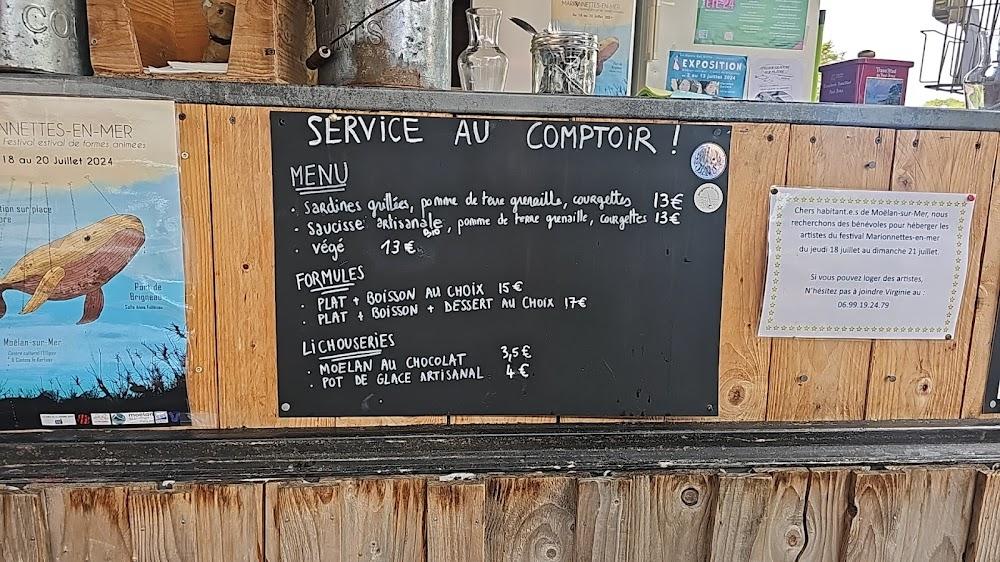 NNETTES-EN-MER
Festival estival de formes animées
18 au 20 Juillet 2024
tion sur place
Port de
Brigneau
Moëlan-sur-Mer
MARIONNETTES-EN-MER
EXPOSITION
2 au 13 juillet 2024
SERVICE AU COMPTOIR !
MENU
. Sardines grillées, pomme de terre grenaille, courgettes 13€
. Saucisse artisanale, pomme de terre grenaille, courgettes 13€
Bio
. végé 13€
FORMULES
. PLAT + BOISSON AU CHOIX 15€
. PLAT + BOISSON + DESSERT AU CHOIX 17€
LiCHOUSERIES
. MOELAN AU CHOCOLAT 3,5€
. POT DE GLACE ARTISANAL 4€
Chers habitant.e.s de Moëlan-sur-Mer, nous
recherchons des bénévoles pour héberger les
artistes du festival Marionnettes-en-mer
du jeudi 18 juillet au dimanche 21 juillet.
Si vous pouvez loger des artistes,
N'hésitez pas à joindre Virginie au :
06.99.19.24.79